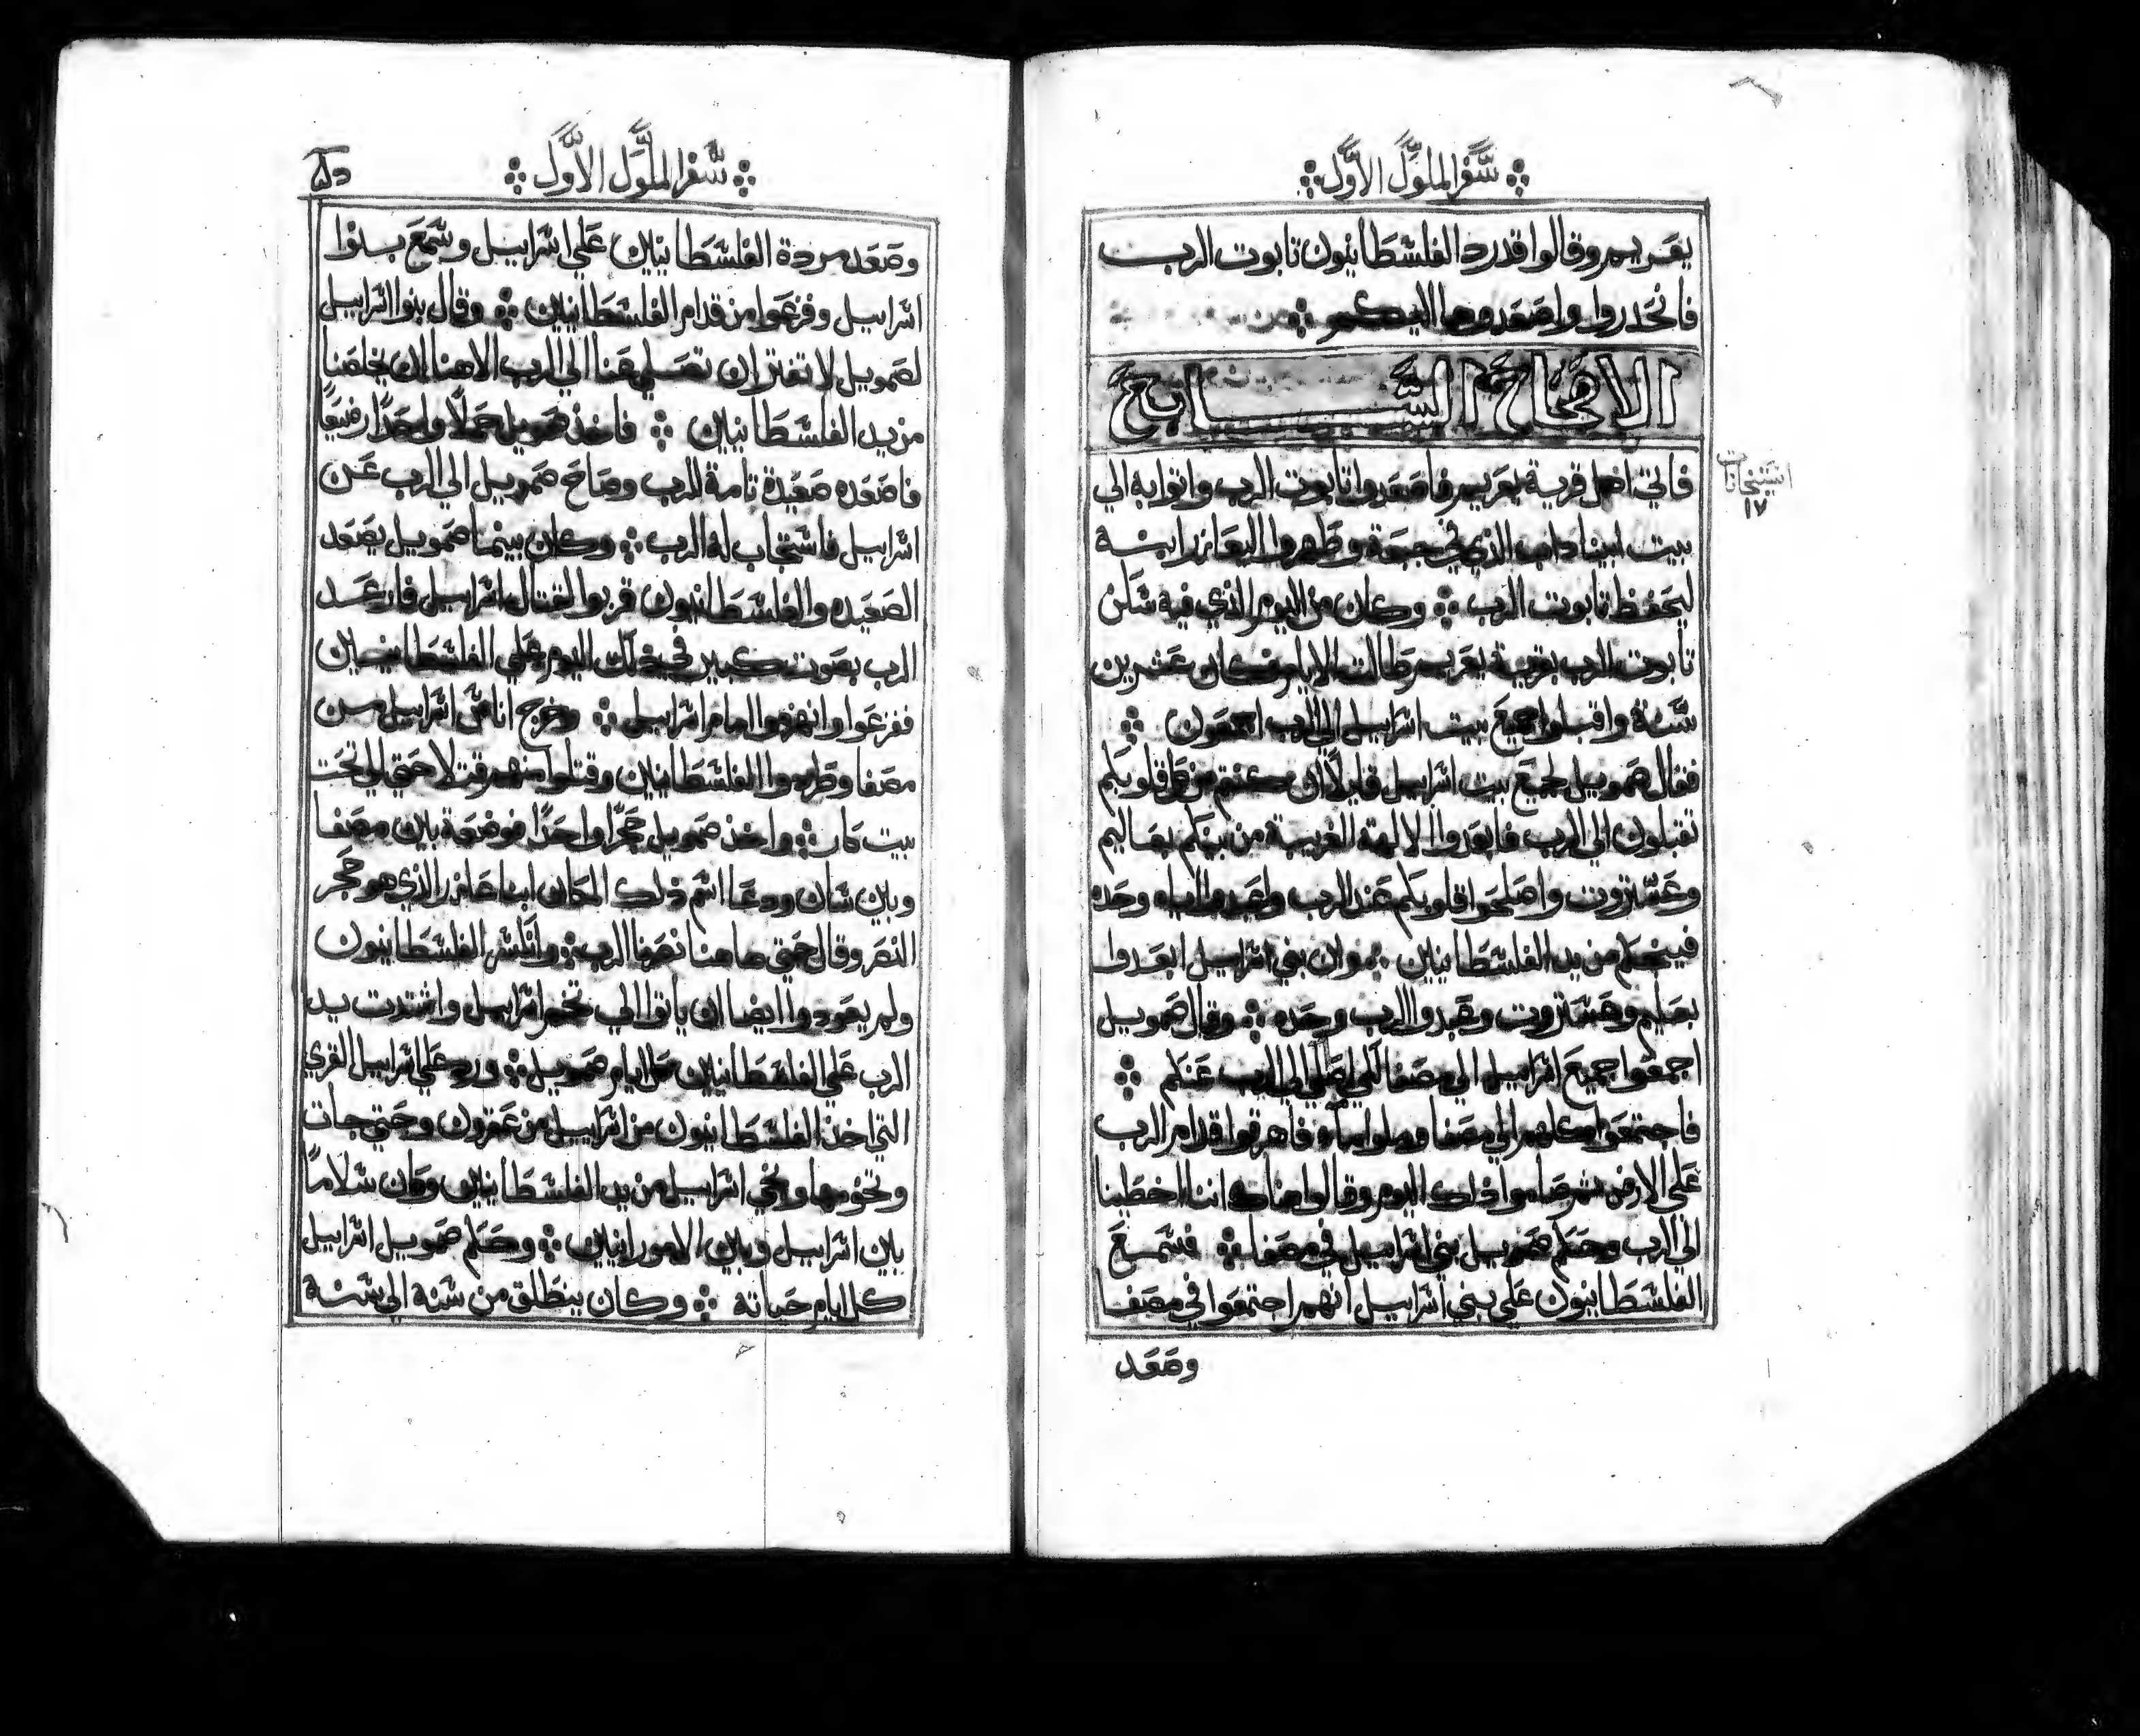 سفر الملوك الاول
يعريم وقالوا قد رد الفلسطانيون تابوت الرب
فانحدروا واصعدوها اليكم
الاصحاح السابع
فاتي اهل قرية يعريم فاصعدوا تابوت الرب واتوا به الي
بيت ابيناداب الذي في جبعة وطهروا اليعازر ابنه
ليحفظ تابوت الرب وكان من اليوم الذي فيه سكن
تابوت الرب بقرية يعريم طالت الايام فكان عشرين
سنة واقبلوا جميع بيت اسراييل الي الرب اجمعون
فقال صمويل لجميع بيت اسراييل قايلا ان كنتم من كل قلوبكم
تقبلون الي الرب فابعدوا الالهة الغريبة من بينكم بعاليم
وعستروت واصلحوا قلوبكم عند الرب واعبدوا اياه وحده
فينجيكم من يد الفلسطانيين وان بني اسراييل ابعدوا
بعليم وعستروت وعبدوا الرب وحده وقال صمويل
اجمعوا جميع اسراييل الي مصفا لكي اصلي الي الرب عنكم
فاجتمعوا كلهم الي مصفا وملوا مآء فاهرقوا قدام الرب
علي الارض ثم صاموا ذلك اليوم وقالوا هناك اننا اخطينا
الي الرب وحكم صمويل بني اسراييل في مصفا فسمع
الفلسطانيون علي بني اسراييل انهم اجتمعوا في مصفا
وصعد
١٧
سفر الملوك الاول
وصعد مردة الفلسطانيين علي اسراييل وسمع بنوا
اسراييل وفزعوا من قدام الفلسطانيين وقال بنوا اسراييل
لصمويل لا تفتر ان تصلي عنا الي الرب الاهنا ان يخلصنا
من يد الفلسطانيين فاخذ صمويل حملا واحدا رضيعا
فاصعده صعيدة تامة للرب وصاح صمويل الي الرب عن
اسراييل فاستجاب له الرب وكان بينما صمويل يصعد
الصعيده والفلسطانيون قربوا لقتال اسراييل فارعد
الرب بصوت كبير في ذلك اليوم علي الفلسطانيين
ففزعوا وانهزموا امام اسراييل وخرج اناس اسراييل من
مصفا وطردوا الفلسطانيين وقتلوا منهم قتلا حتي الي تحت
بيت كار واخذ صمويل حجرا واحدا فوضعة بين مصفا
وبين سان ودعا اسم ذلك المكان ابنا عازر الذي هو حجر
النصر وقال حتي هاهنا نصرنا الرب وانكسر الفلسطانيون
ولم يعودوا ايضا ان ياتوا الي تخم اسراييل واشتدت يد
الرب علي الفلسطانيين كل ايام صمويل ورد علي اسراييل القري
التي اخذ الفلسطانيون من اسراييل من عقرون وحتي جات
وتخومها ونجي اسراييل من يد الفلسطانيين وكان سلاما
بين اسراييل وبين الامورانيين وحكم صمويل اسراييل
كل ايام حياته وكان ينطلق من سنه الي سنة